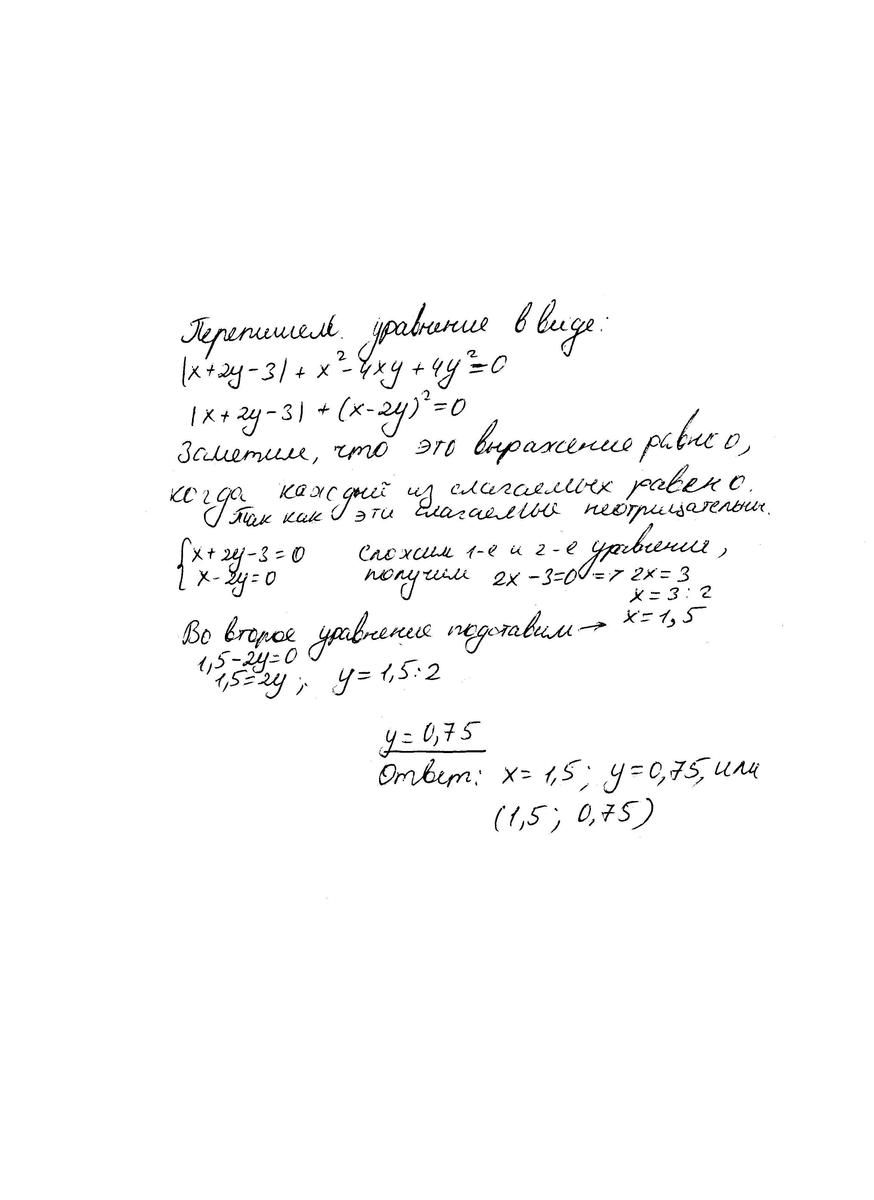 Перепишем уравнение в виде:
|x+2y-3| + x²-4xy+4y²=0
|x+2y-3| + (x-2y)²=0
Заметим, что это выражение равно 0,
когда каждый из слагаемых равен 0.
Так как эти слагаемые неотрицательны.
{x+2y-3=0 Сложим 1-е и 2-е уравнение,
x-2y=0 получим 2x-3=0 => 2x=3
x=3:2
x=1,5
Во второе уравнение подставим →
1,5-2y=0
1,5=2y; y=1,5:2
y=0,75
Ответ: x=1,5; y=0,75, или
(1,5; 0,75)